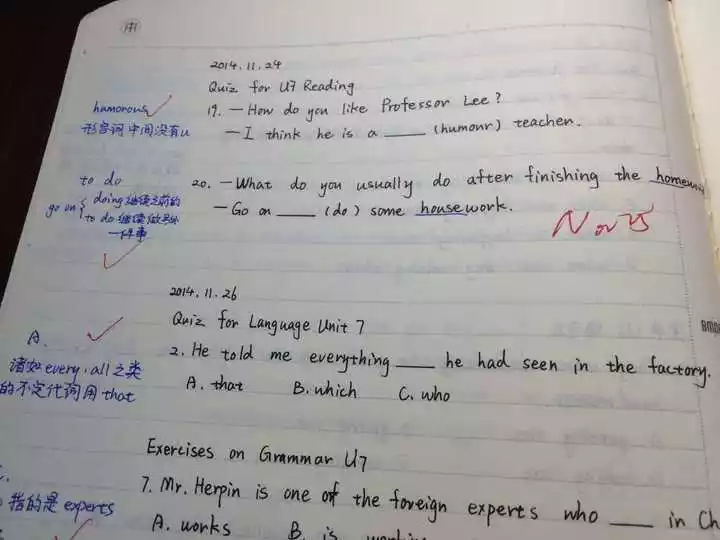 171
2014.11.24
Quiz for U7 Reading
humorous
形容词中间没有u
19. —How do you like Professor Lee?
—I think he is a ____ (humour) teacher.
to do
go on { doing 继续之前的
to do 继续做另外
一件事
20. —What do you usually do after finishing the
—Go on ____ (do) some housework.
Nov 25
2014.11.26
Quiz for Language Unit 7
A.
诸如every, all之类
的不定代词用that
2. He told me everything ____ he had seen in the factory.
A. that B. which C. who
Exercises on Grammar U7
指的是experts
7. Mr. Herpin is one of the foreign experts who ____ in Ch
A. works B. is